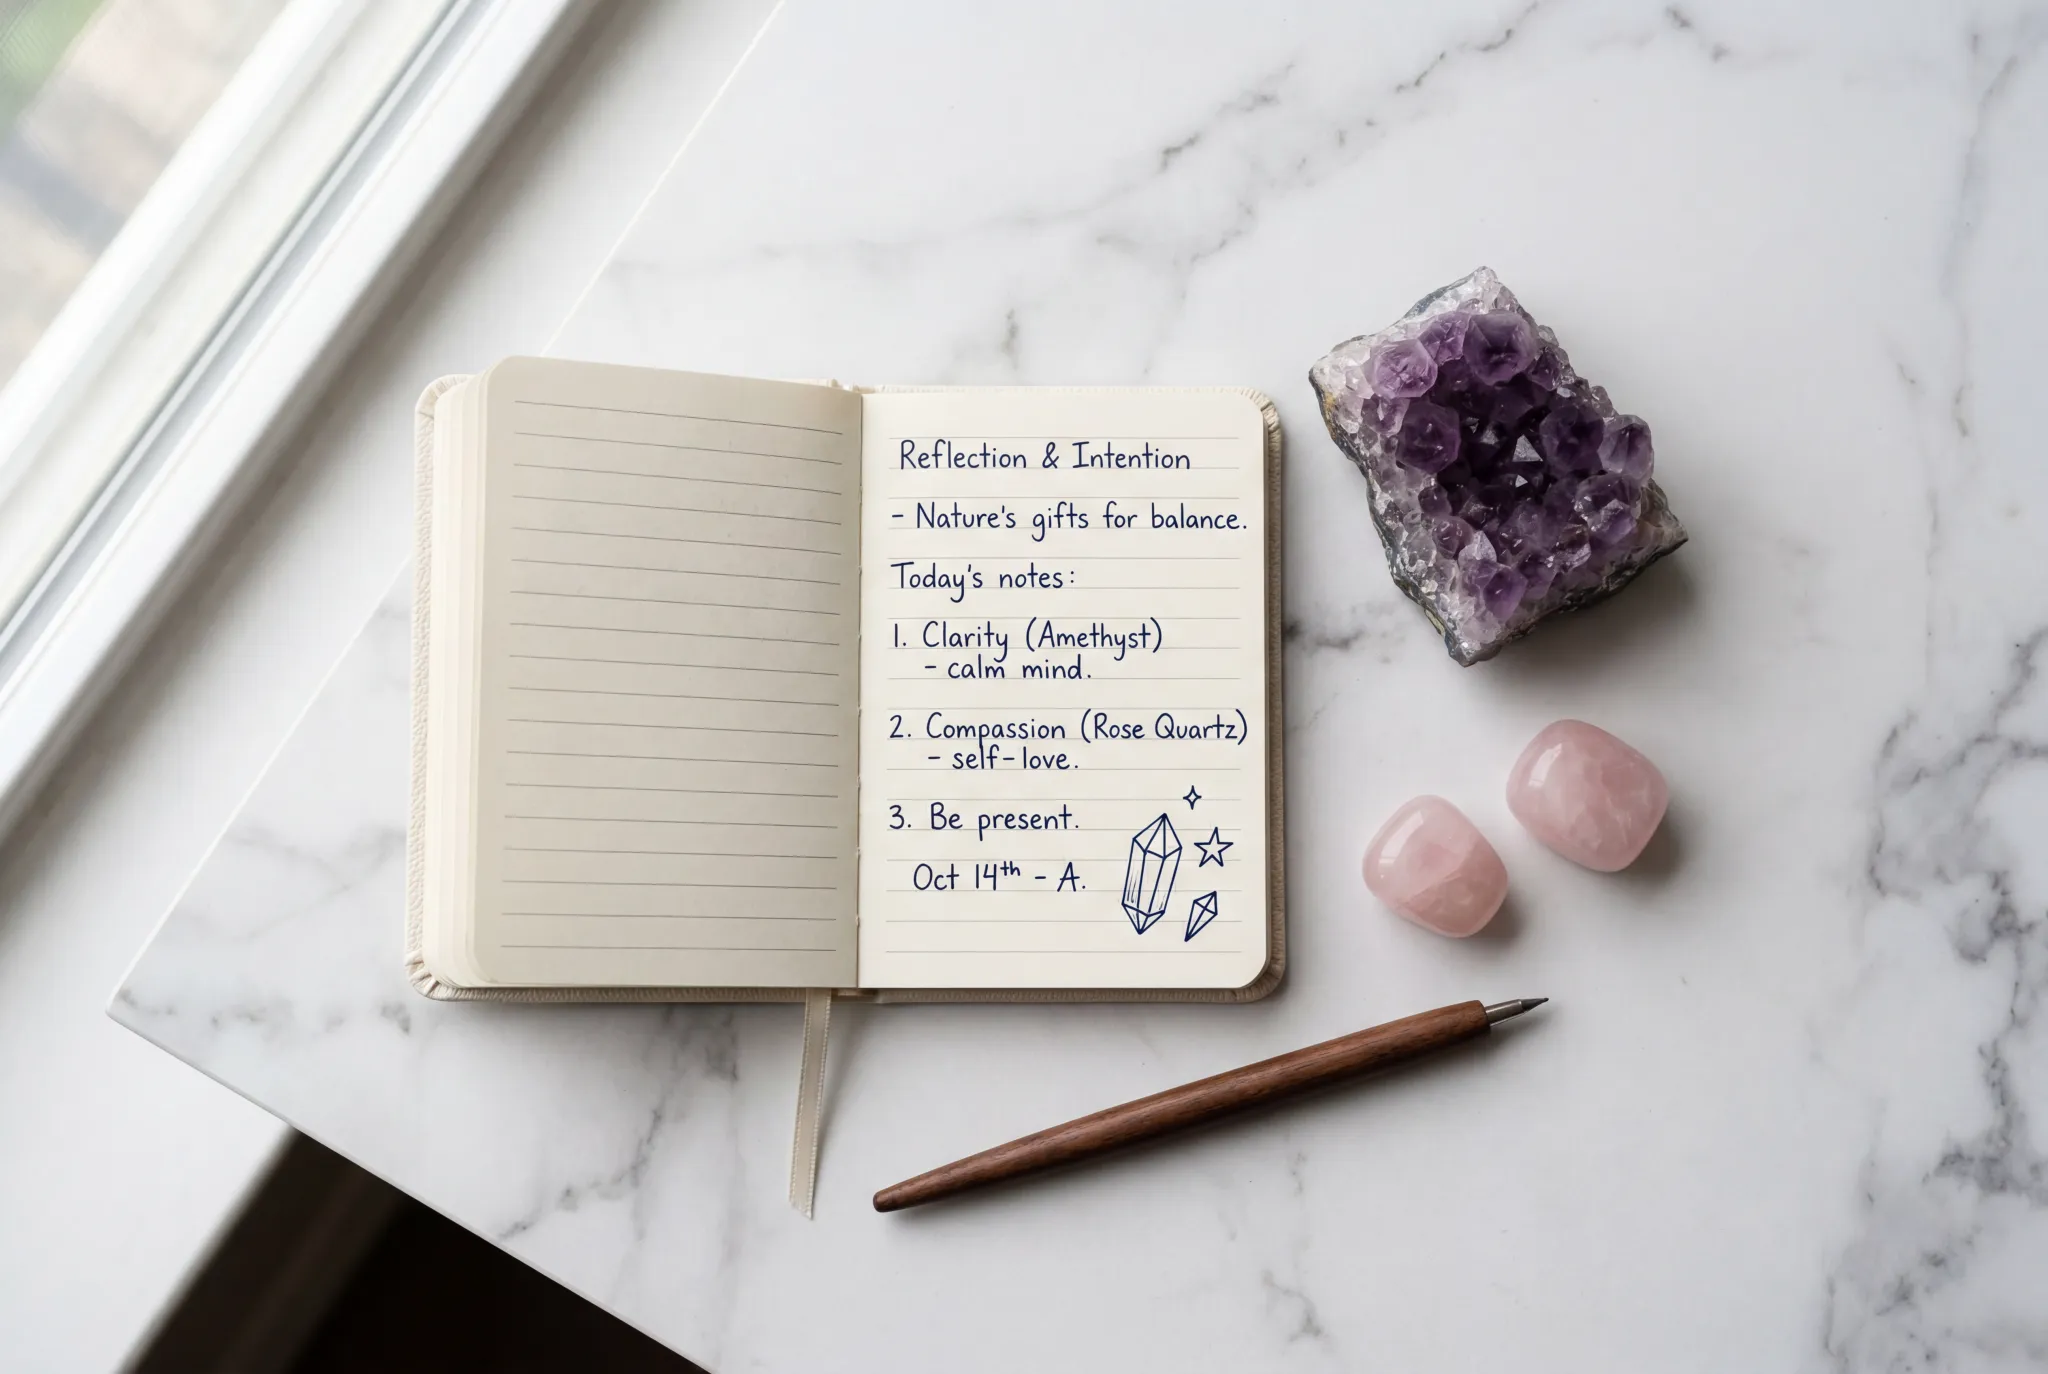 Reflection & Intention
- Nature's gifts for balance.
Today's notes:
1. Clarity (Amethyst)
- calm mind.
2. Compassion (Rose Quartz)
- self-love.
3. Be present.
Oct 14th - A.